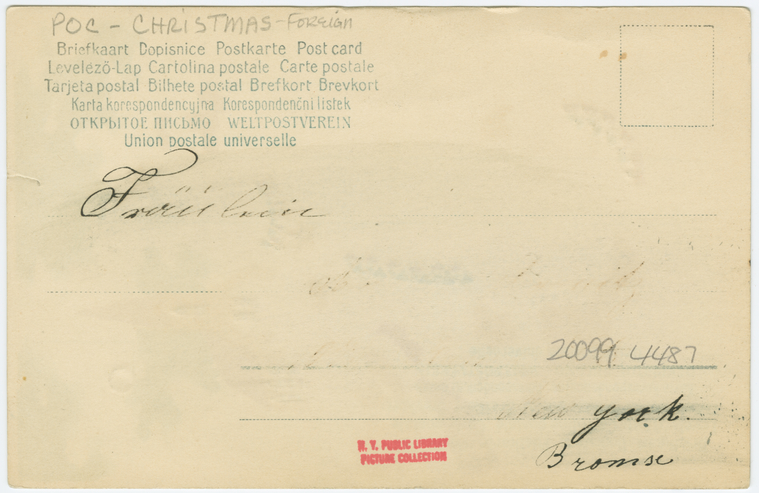 POC - CHRISTMAS - FOREIGN
Briefkaart Dopisnice Postkarte Post card
Levelező-Lap Cartolina postale Carte postale
Tarjeta postal Bilhete postal Brefkort Brevkort
Karta korespondencyjna Korespondenční listek
ОТКРЫТОЕ ПИСЬМО WELTPOSTVEREIN
Union postale universelle
Fräulein
20099 4487
New York.
N. Y. PUBLIC LIBRARY
PICTURE COLLECTION
Bromse